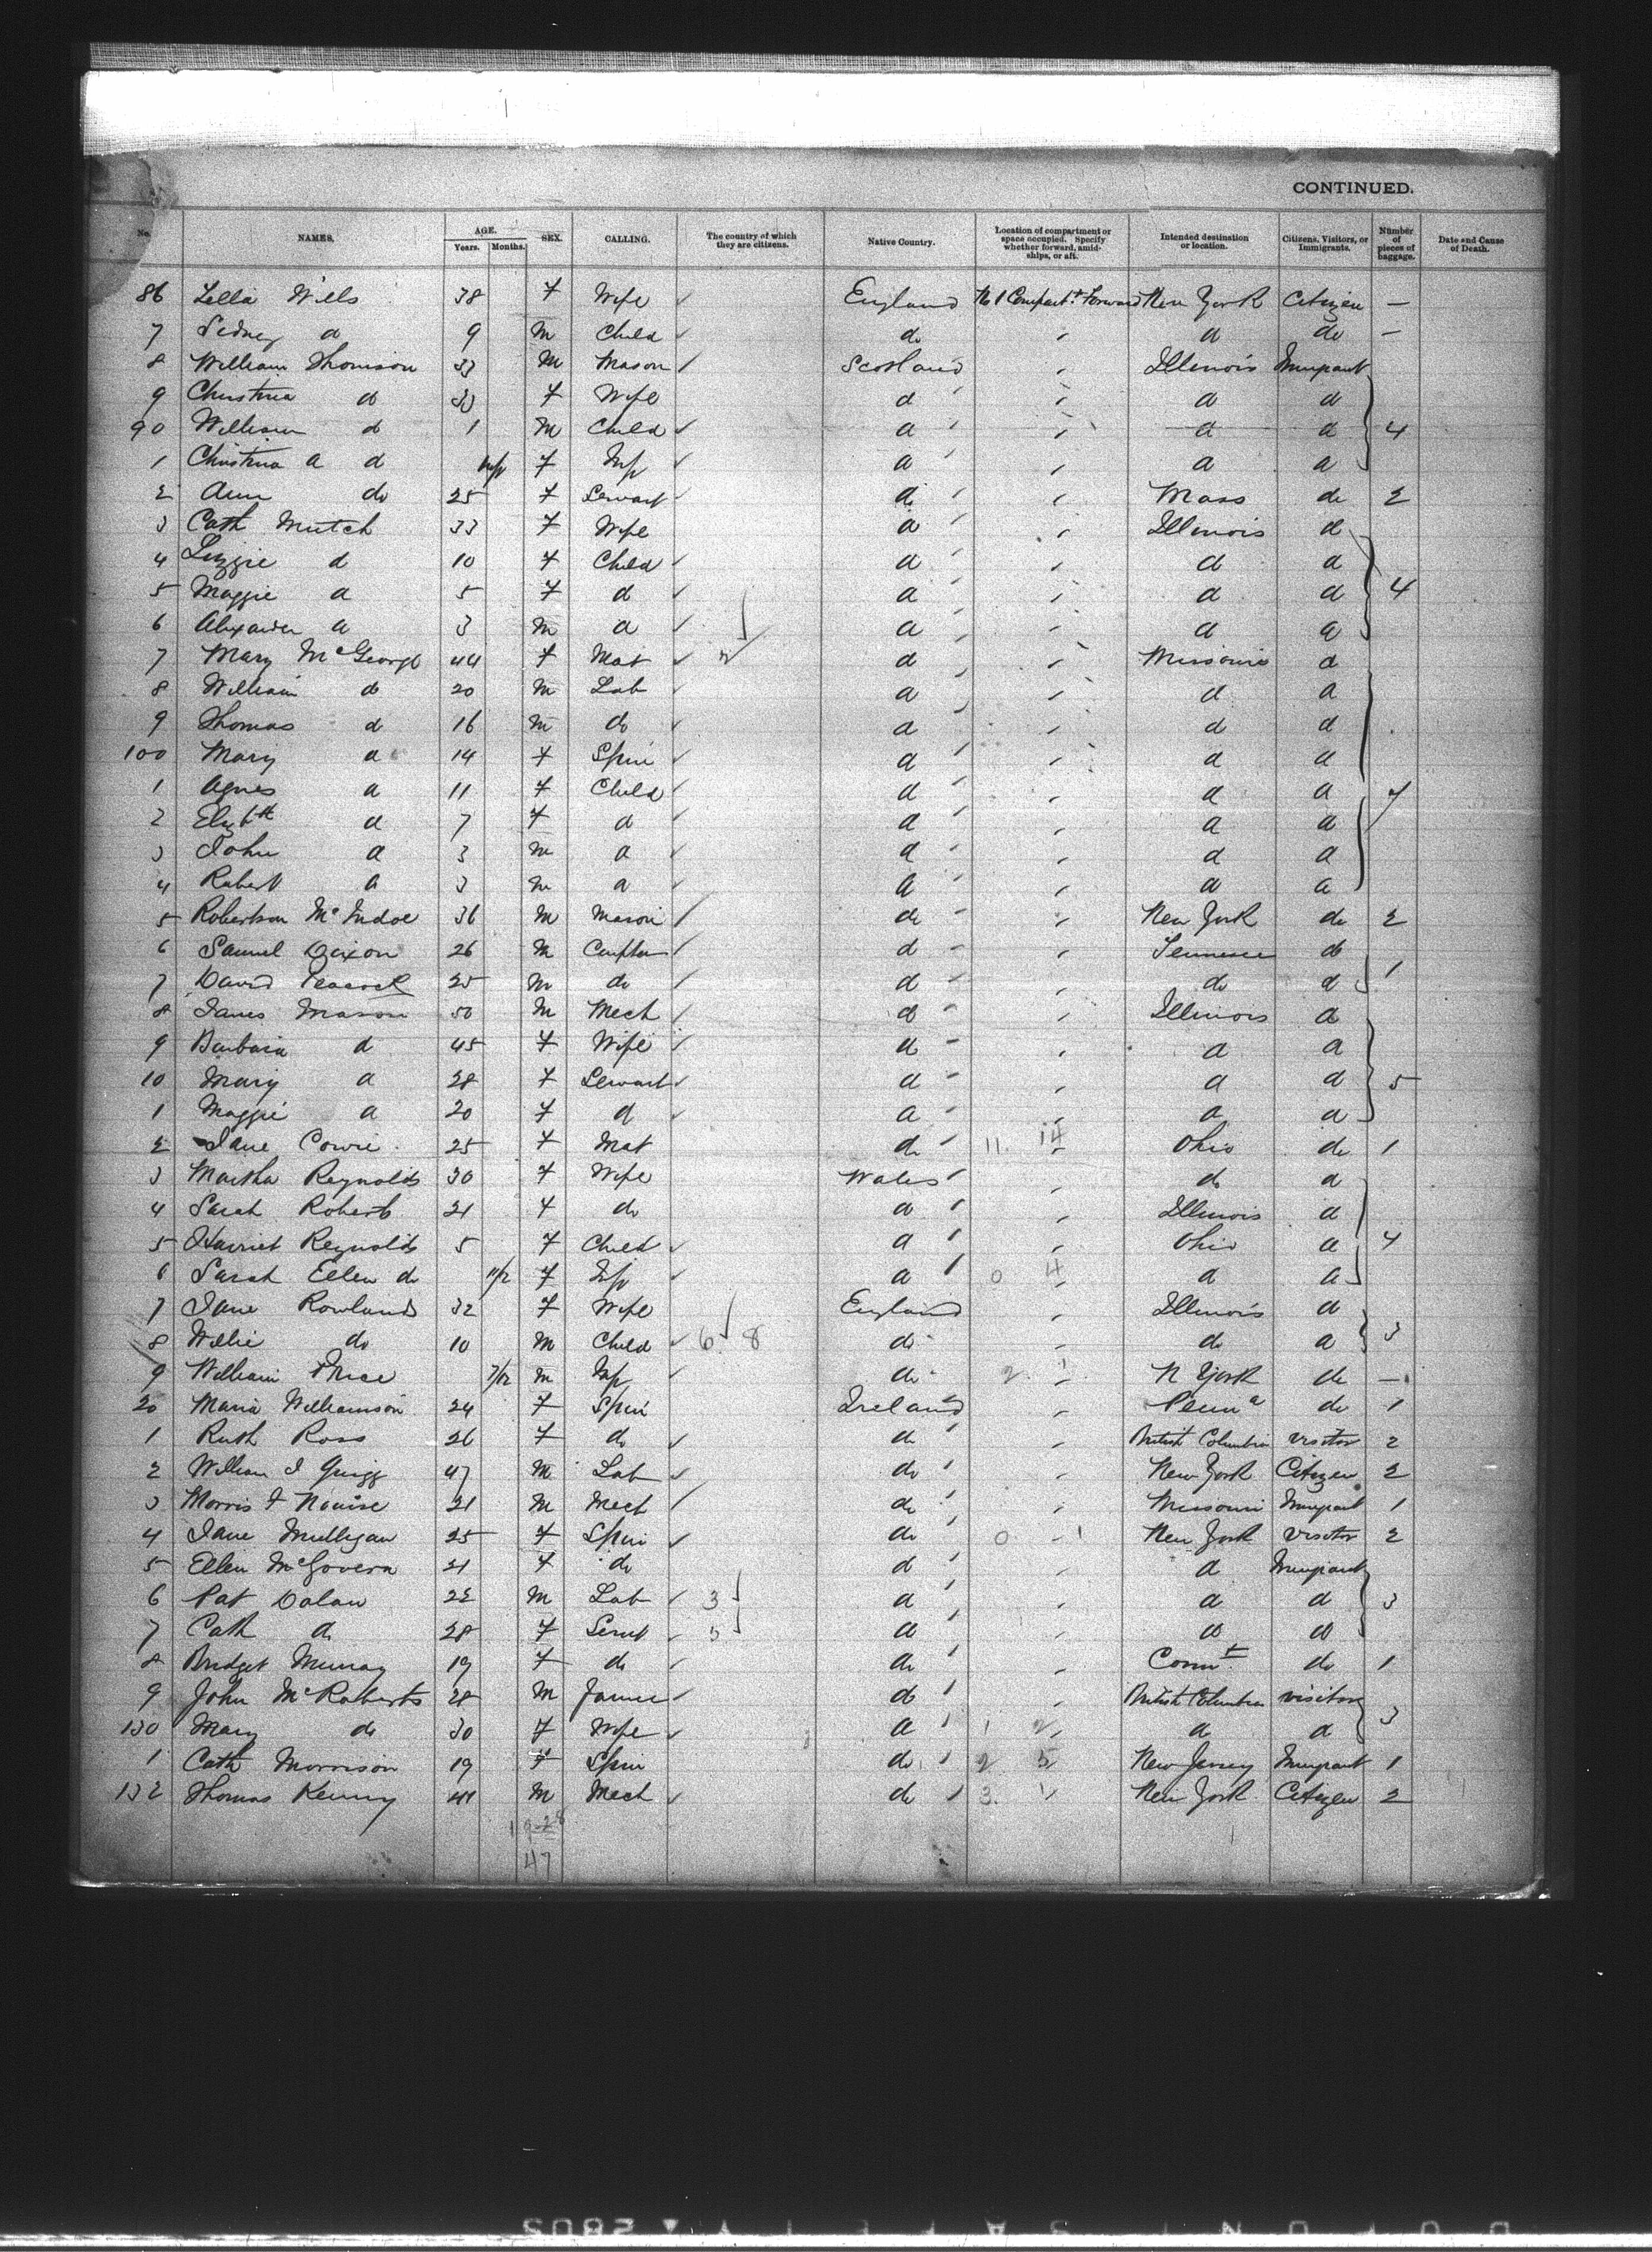 CONTINUED.
No. NAMES. AGE. Years. Months. SEX. CALLING. The country of which they are citizens. Native Country. Location of compartment or space occupied. Specify whether forward, amidships, or aft. Intended destination or location. Citizens, Visitors, or Immigrants. Number of pieces of baggage. Date and Cause of Death.
86 Lella Wills 38 F Wife England No 1 Compartt Forward New York Citizen —
7 Sidney d 9 M Child do " d do —
8 William Thomson 33 M Mason Scotland " Illinois Immigrant
9 Christina do 33 F Wife d " d d
90 William d 1 M Child d " d d 4
1 Christina A d F Inf d " d d
2 Ann do 25 F Servant do " Mass do 2
3 Cath Mutch 33 F Wife d " Illinois d
4 Lizzie d 10 F Child d " d d
5 Maggie d 5 F d d " d d 4
6 Alexander d 3 M d d " d d
7 Mary McGeorge 44 F Mat d " Missouri d
8 William do 20 M Lab d " d d
9 Thomas d 16 M do d " d d
100 Mary d 14 F Spin d " d d
1 Agnes d 11 F Child d " d d 7
2 Elizbth d 7 F d d " d d
3 John d 3 M d d " d d
4 Robert d 3 M d d " d d
5 Robertson McIndoe 36 M Mason do " New York do 2
6 Samuel Dixon 26 M d " Tennessee do
7 David Peacock 25 M do d " do d 1
8 James Mason 50 M Mech d " Illinois d
9 Barbara d 45 F Wife d " d d
10 Mary d 28 F Servant d " d d 5
1 Maggie d 20 F d d " d d
2 Jane Cowie 25 F Mat do 11. 14 " Ohio do 1
3 Martha Reynolds 30 F Wife Wales " do d
4 Sarah Roberts 21 F do d " Illinois d
5 Harriet Reynolds 5 F Child d " Ohio d 4
6 Sarah Ellen do 11/12 F Inf d 0 4 " d d
7 Jane Rowlands 32 F Wife England " Illinois d
8 Willie do 10 M Child 6 8 do " do d 3
9 William Price 7/12 M Inf do 2 " N York do —
20 Maria Williamson 24 F Spin Ireland " Penna do 1
1 Ruth Ross 26 F do do " British Columbia visitor 2
2 William J Grigg 47 M Lab do " New York Citizen 2
3 Morris 21 M Mech do " Missouri Immigrant 1
4 Jane Mulligan 25 F Spin do 0 " New York visitor 2
5 Ellen McGovern 21 F do d " d Immigrant
6 Pat Dolan 22 M Lab 3 d " d d 3
7 Cath do 28 F Servt 5 d " do do
8 Bridget Murray 19 F do do " Connt do 1
9 John McRoberts 28 M Farmer do " British Columbia visitor
130 Mary do 30 F Wife d 1 2 " d d 3
1 Cath Morrison 19 F Spin do 2 5 New Jersey Immigrant 1
132 Thomas Kenny 41 M Mech do 3. 1 New York Citizen 2
19-28
47